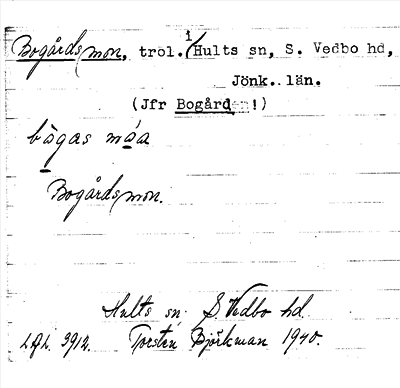 Bogårds/mon, trol. i Hults sn, S. Vedbo hd,
Jönk. län.
(Jfr Bogården!)
bògas móa
Bogårds/mon.
Hults sn S. Vedbo hd.
Torsten Björkman 1940.